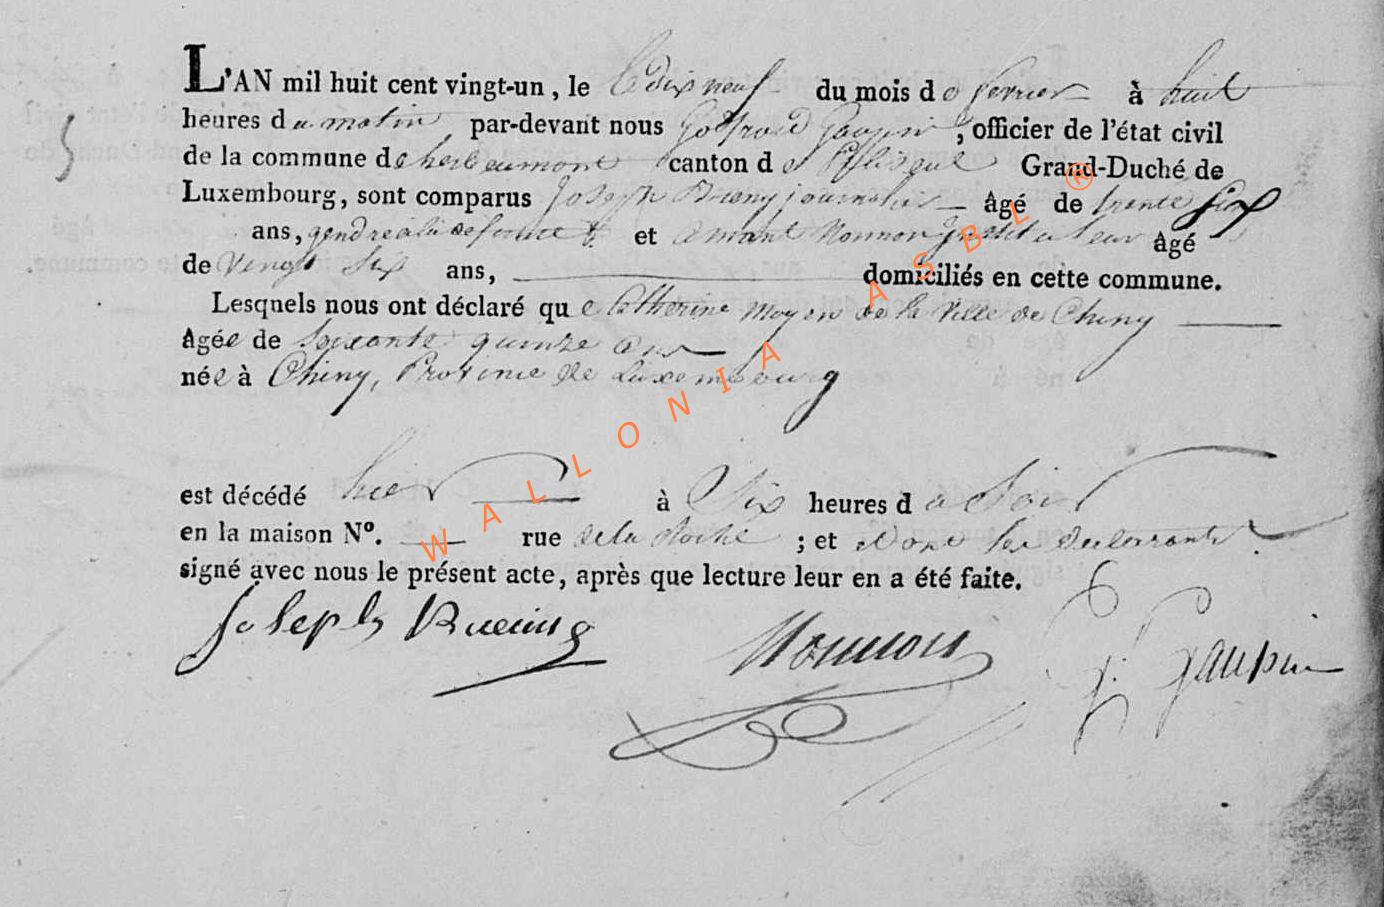 L'AN mil huit cent vingt-un, le le dix neuf du mois de fevrier à huit
heures du matin, par-devant nous Godfroid Gaupin, officier de l'état civil
de la commune d'herbeumont canton de Paliseul Grand-Duché de
Luxembourg, sont comparus Joseph journalier âgé de trente six
ans, gendre à la defunte et et amant Monnon Instituteur âgé
de Vingt Six ans, domiciliés en cette commune.
Lesquels nous ont déclaré que Catherine Moyen de la Ville de Chiny
âgée de Soixante quinze ans
née à Chiny, Province de Luxembourg
est décédé hier à Six heures du Soir
en la maison N°. rue de la Roche ; et dont les declarants
signé avec nous le présent acte, après que lecture leur en a été faite.
Joseph Monnon G. Gaupin
WALLONIA ASBL ®